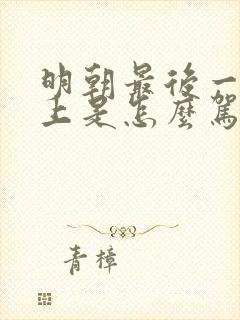 明朝最後一
上是怎麼駕
青樟